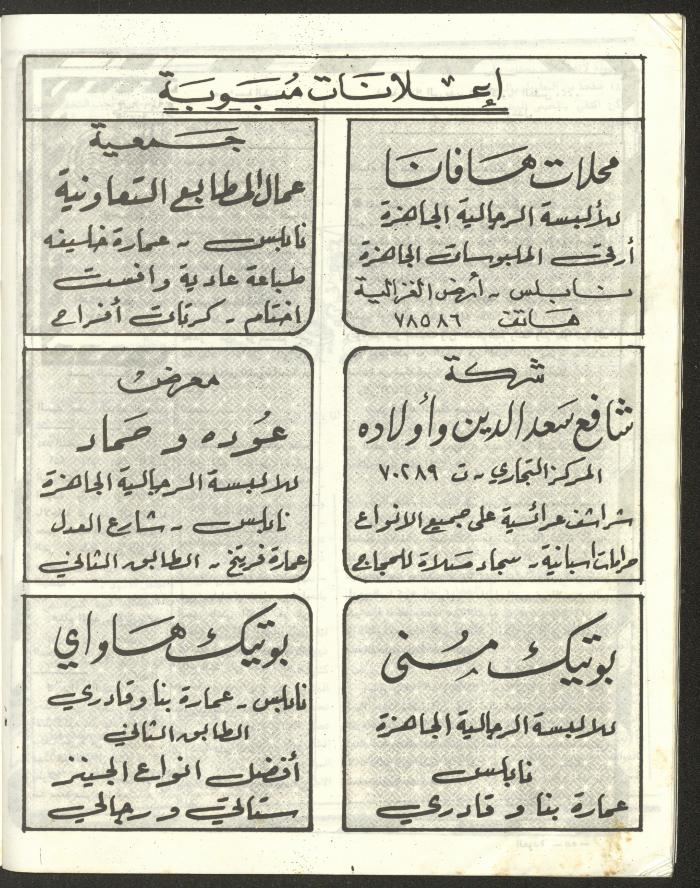 إعلانات مُبَوبَة
محلات هافانا
للألبسة الرجالية الجاهزة
أرقى الملبوسات الجاهزة
نابلس - أرض الغزالية
هاتف ٧٨٥٨٦
جمعية
عمال المطابع التعاونية
نابلس - عمارة خليفه
طباعة عادية وافست
اختام - كرتات أفراح
شركة
شافع سَعد الدين وأولاده
المركز التجاري - ت ٧٠٢٨٩
شراشف عرائسية على جميع الانواع
حرامات اسبانية - سجاد مَصلاة للحجاج
معرض
عوده و حماد
للالبسة الرجالية الجاهزة
نابلس - شارع العدل
عمارة فريتخ - الطابق الثاني
بوتيك مُنى
للالبسة الرجالية الجاهزة
نابلس
عمارة بنا و قادري
بوتيك هاواي
نابلس - عمارة بنا وقادري
الطابق الثاني
أفضل انواع الجينز
ستاتي ورجالي